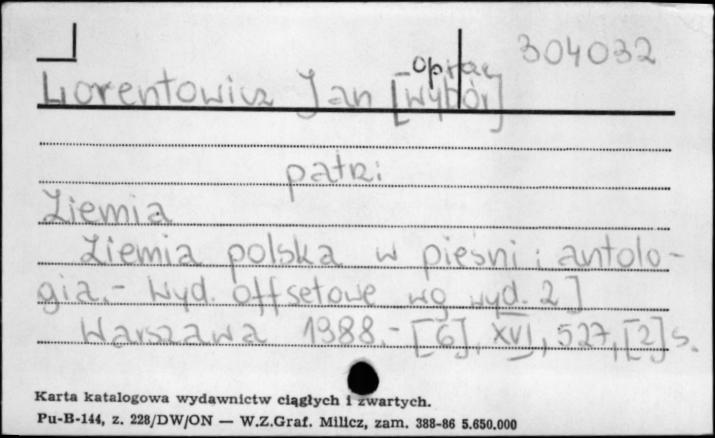 304032
oprac
Lorentowicz Jan [Wybór]
patrz:
Ziemia
Ziemia polska w pieśni : antolo-
gia.- Wyd. offsetowe wg wyd. 2]
Warszawa 1988.- [6], XVI, 527, [2] s.
Karta katalogowa wydawnictw ciągłych i zwartych.
Pu-B-144, z. 228/DW/ON — W.Z.Graf. Milicz, zam. 388-86 5.650.000